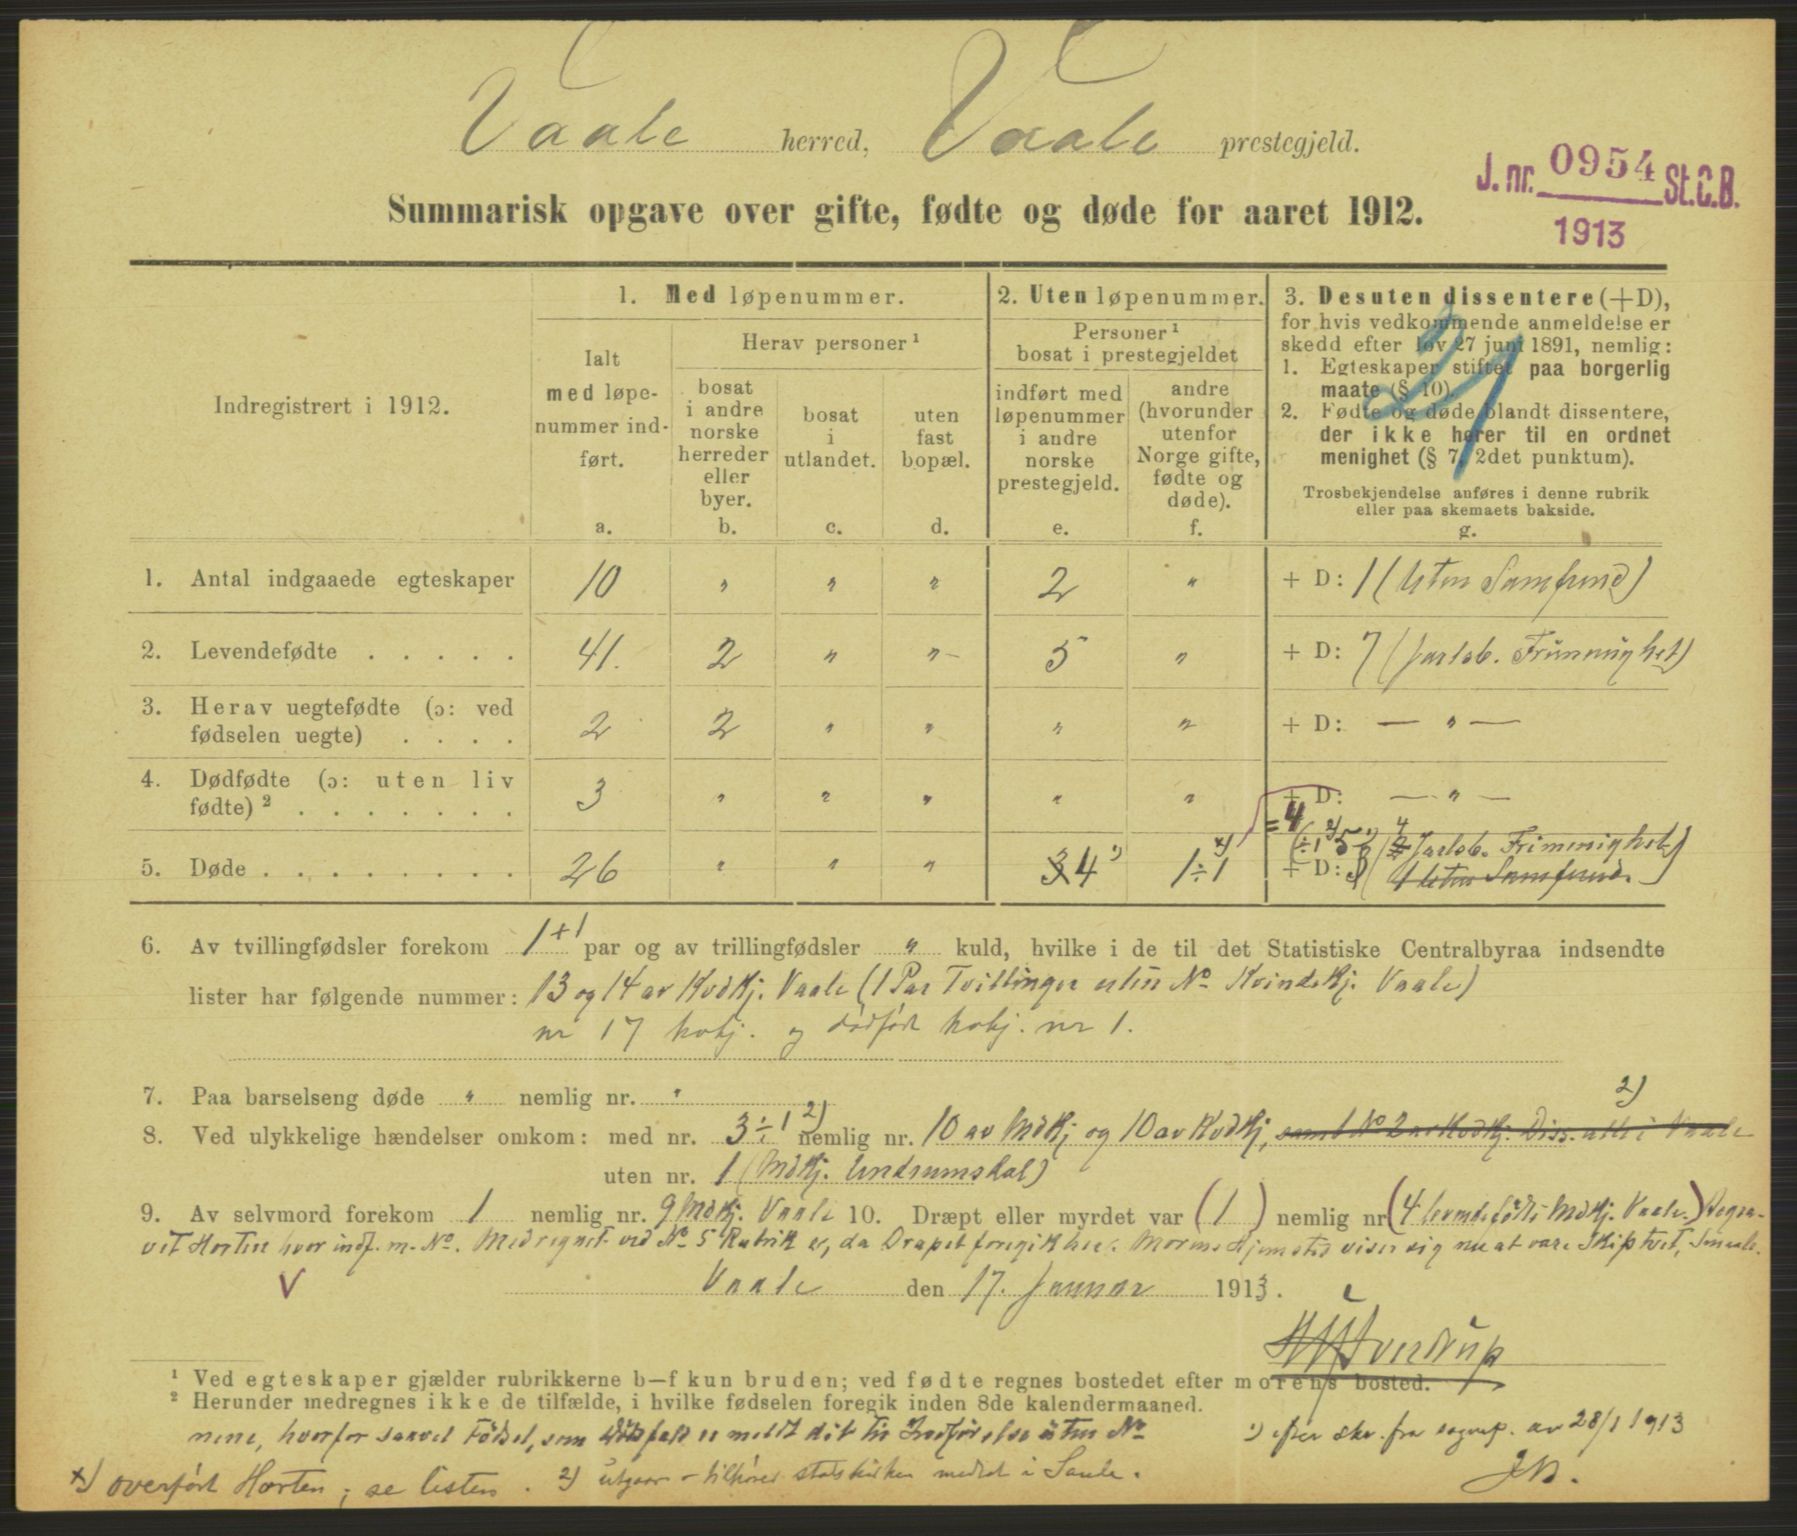 Vaale herred, Vaale prestegjeld.
J. nr. 0954 St.C.B.
1913
Summarisk opgave over gifte, fødte og døde for aaret 1912.
21
Indregistrert i 1912.
1. Med løpenummer.
Ialt
med løpe-
nummer ind-
ført.
a.
Herav personer ¹
bosat
i andre
norske
herreder
eller
byer.
b.
bosat
i
utlandet.
c.
uten
fast
bopæl.
d.
2. Uten løpenummer.
Personer ¹
bosat i prestegjeldet
indført med
løpenummer
i andre
norske
prestegjeld.
e.
andre
(hvorunder
utenfor
Norge gifte,
fødte og
døde).
f.
3. Desuten dissentere (+D),
for hvis vedkommende anmeldelse er
skedd efter lov 27 juni 1891, nemlig:
1. Egteskaper stiftet paa borgerlig
maate (§ 10).
2. Fødte og døde blandt dissentere,
der ikke hører til en ordnet
menighet (§ 7, 2det punktum).
Trosbekjendelse anføres i denne rubrik
eller paa skemaets bakside.
g.
1. Antal indgaaede egteskaper 10 " " " 2 " + D: 1 (Uten Samfund)
2. Levendefødte . . . . . 41. 2 " " - 5 " + D: 7 (Jarlsb. Frimenighet)
3. Herav uegtefødte (ɔ: ved
fødselen uegte) . . . . 2 2 " " " " + D: — " —
4. Dødfødte (ɔ: uten liv
fødte) ² . . . . . . . 3 " " " " " + D: — " —
= 4
(÷1 2) 5 4 Jarlsb. Frimenighet
5. Døde . . . . . . . . 26 " " " 3 4 ¹) 1÷1 ×) + D: (1 Uten Samfund.)
6. Av tvillingfødsler forekom 1+1 par og av trillingfødsler " kuld, hvilke i de til det Statistiske Centralbyraa indsendte
lister har følgende nummer: 13 og 14 av Kvdkj. Vaale (1 Par Tvillinger uten No Kvindekj. Vaale)
nr 17 kvkj. og dødfødt kvkj. nr 1.
7. Paa barselseng døde " nemlig nr. "
8. Ved ulykkelige hændelser omkom: med nr. 3÷1 2) nemlig nr. 10 av Mdkj og 10 av Kvdkj, samt No 2 av Kvdkj. Diss. alle i Vaale 2)
uten nr. 1 (Mdkj. Undrumsdal)
9. Av selvmord forekom 1 nemlig nr. 9 Mdkj. Vaale 10. Dræpt eller myrdet var (1) nemlig nr (4 levendefødte Mdkj. Vaale.) Begra-
vet Horten hvor indf. m. No. Medregnet ved No 5 Rubrik e, da Drapet foregik her. Morens Hjemsted viser sig nu at være Skiptvet, Smaale-
V
Vaale den 17. Januar 1913.
Sverdrup
¹ Ved egteskaper gjælder rubrikkerne b—f kun bruden; ved fødte regnes bostedet efter morens bosted.
² Herunder medregnes ikke de tilfælde, i hvilke fødselen foregik inden 8de kalendermaaned.
nene, hvorfor saavel Fødsel, som Dødsfald er meldt dit til Indførelse uten No
¹) efter skr. fra sognep. av 28/1 1913
×) overført Horten; se listen. 2) utgaar - tilhører statskirken medtat i Saule.